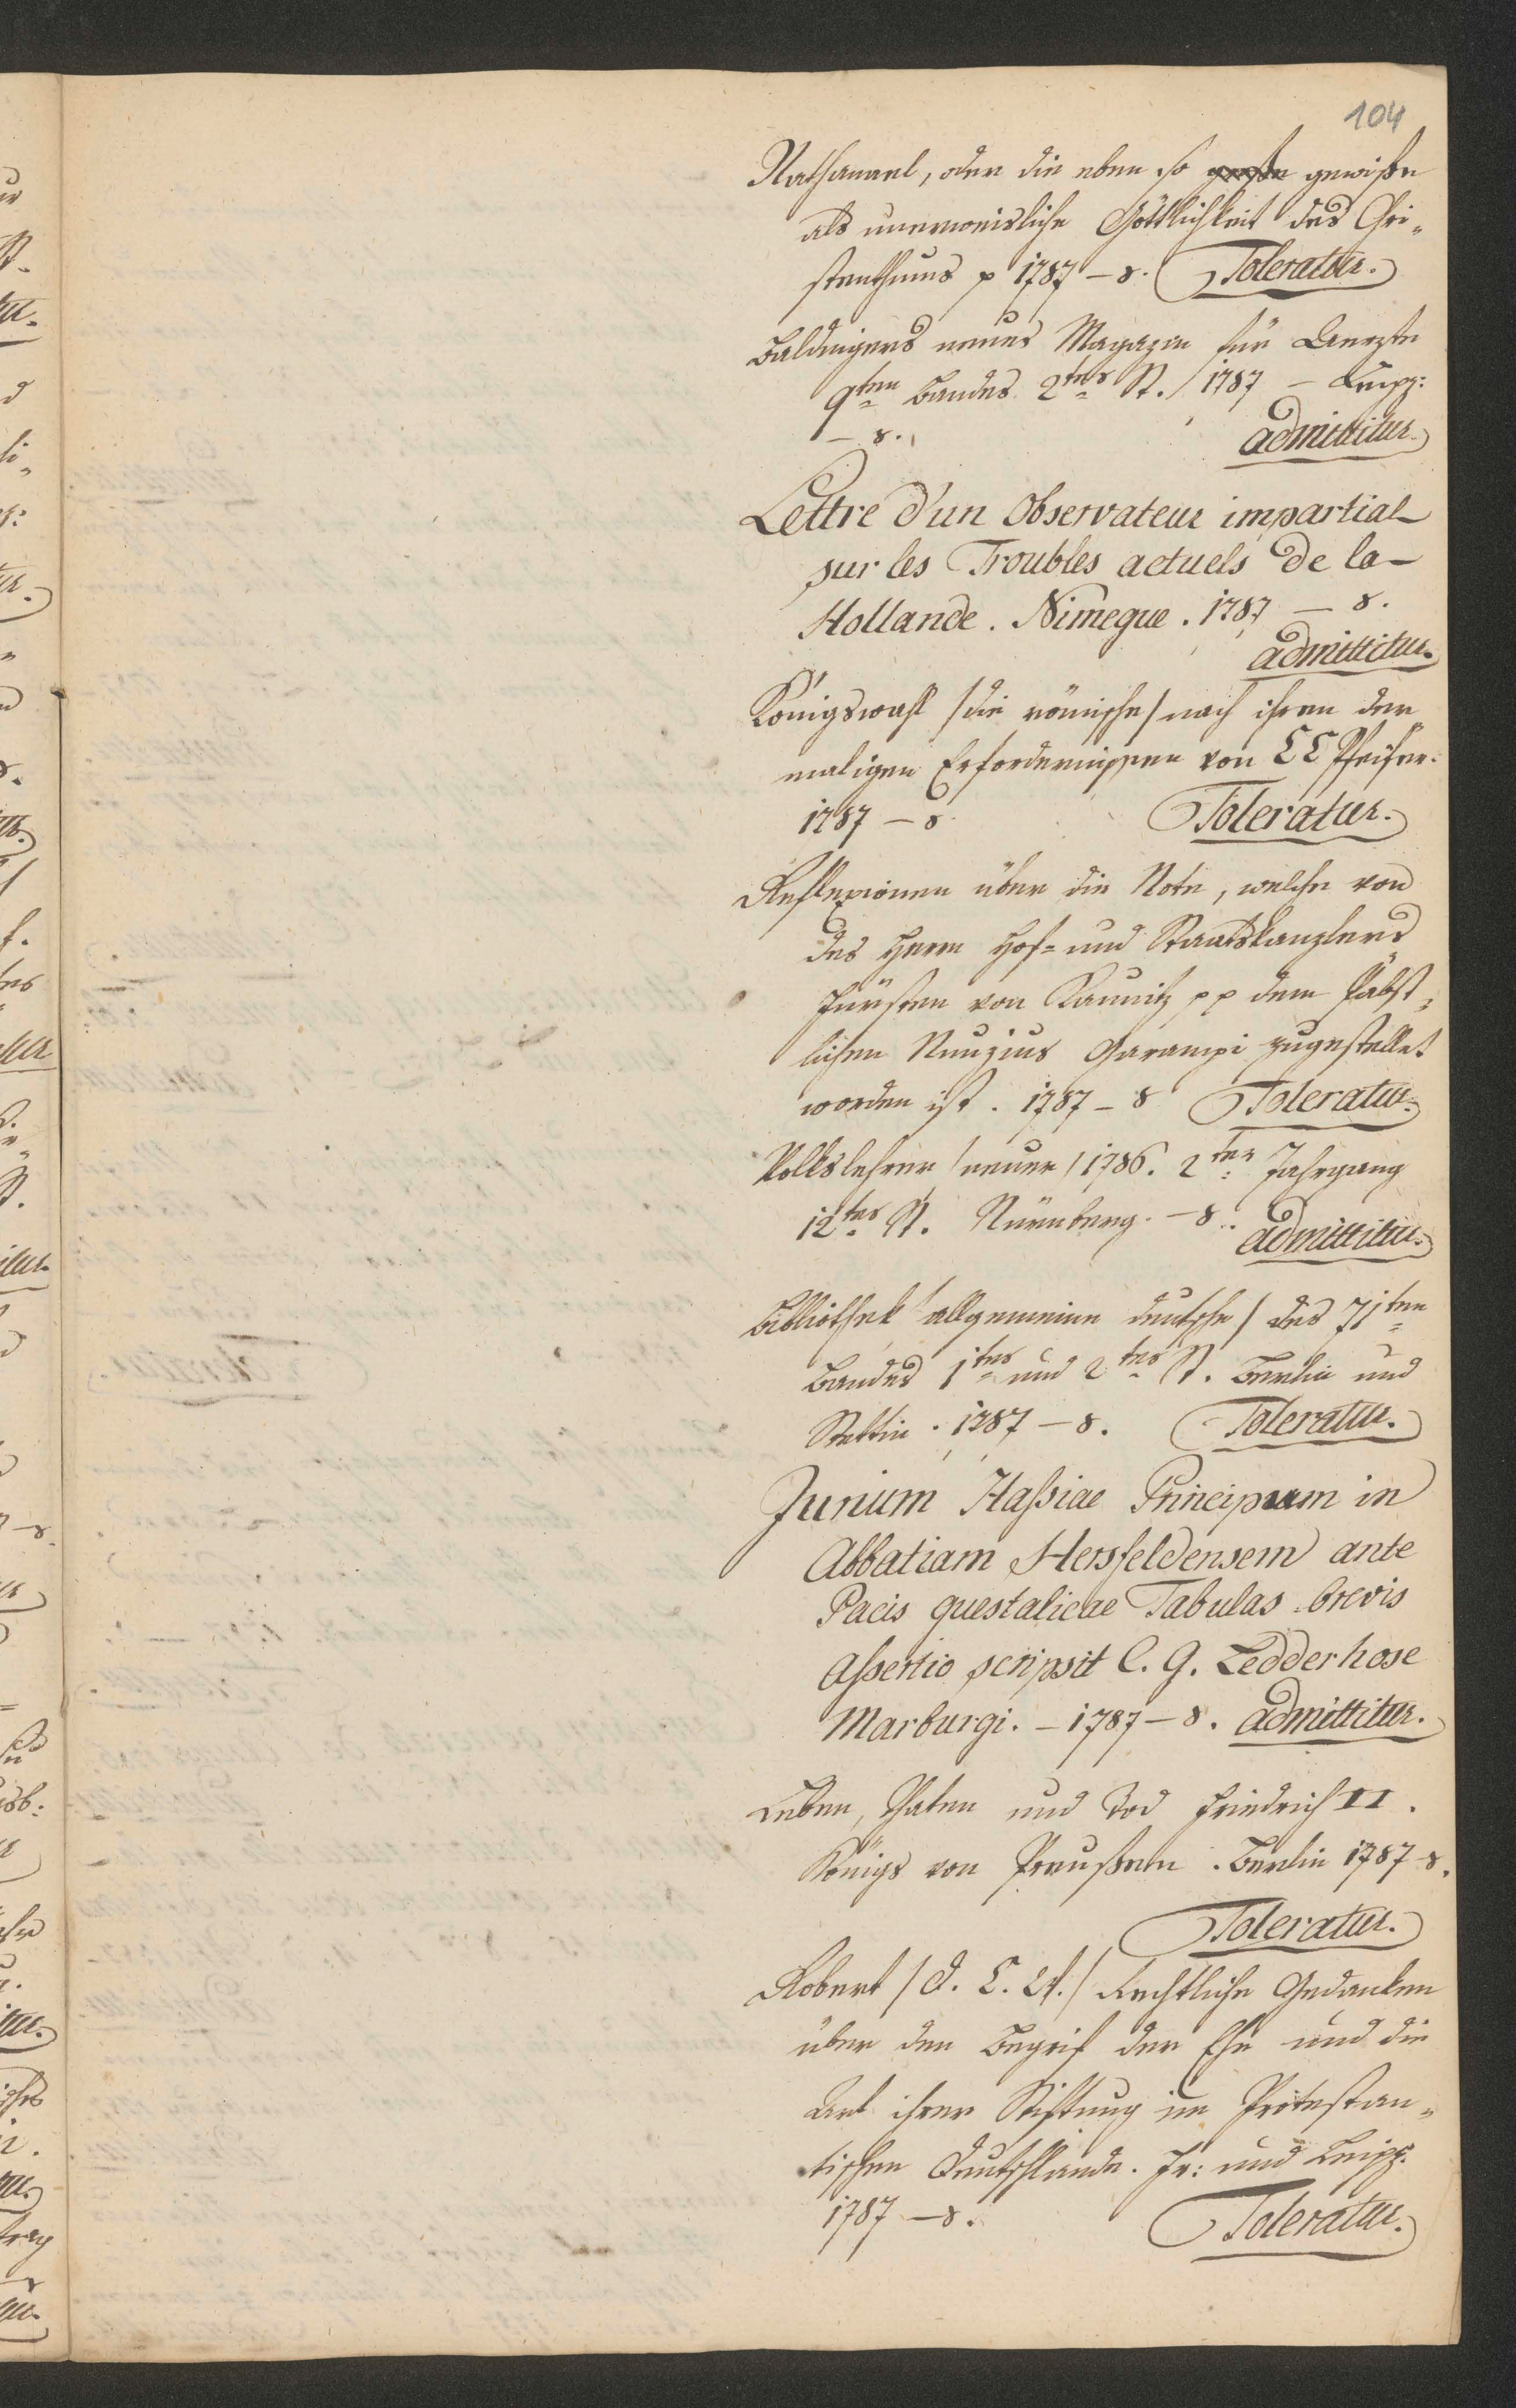 104
Nathanael, oder die eben so große gewiße
als unerweisliche Göttlichkeit des Chri„
stenthums p 1787 – 8. Toleratur.
Baldingers neues Magazin für Aerzte
9ten Bandes 2tes St. 1787 – Leipz:
– 8. admittitur
Lettre d'un Observateur impartial
sur les Troubles actuels de la
Hollande. Nimegue. 1787 – 8.
admittitur.
Königswahl /die römische/ nach ihren der
maligen Erfordernissen von Pfeifer.
1787 – 8 Toleratur.
Reflexionen über die Note, welche von
des Herrn Hof= und Staatskanzlers
Fürsten von Kaunitz pp dem Päbst„
lichen Nunzius Garampi zugestellet
worden ist. 1787 – 8 Toleratur.
Volkslehrer /neuer/ 1786. 2ter Jahrgang
12tes St. Nürnberg. – 8. admittitur.
Bibliothek /allgemeine deutsche/ des 71ten
Bandes 1tes und 2tes St. Berlin und
Stettin. 1787 – 8. Toleratur.
Jurium Haßiae Principum in
Abbatiam Hersfeldensem ante
Pacis guestalicae Tabulas brevis
aßertio scripsit C. G. Ledderhose
Marburgi. – 1787 – 8. admittitur.
Leben, Thaten und Tod Friedrich II.
Königs von Preußen. Berlin 1787 – 8.
Toleratur.
Robert /D. C. W./ Rechtliche Gedanken
über den Begrif der Ehe und die
Art ihrer Stiftung im Protestan„
tischen Deutschlande. Fr: und Leipz.
1787 – 8. Toleratur.